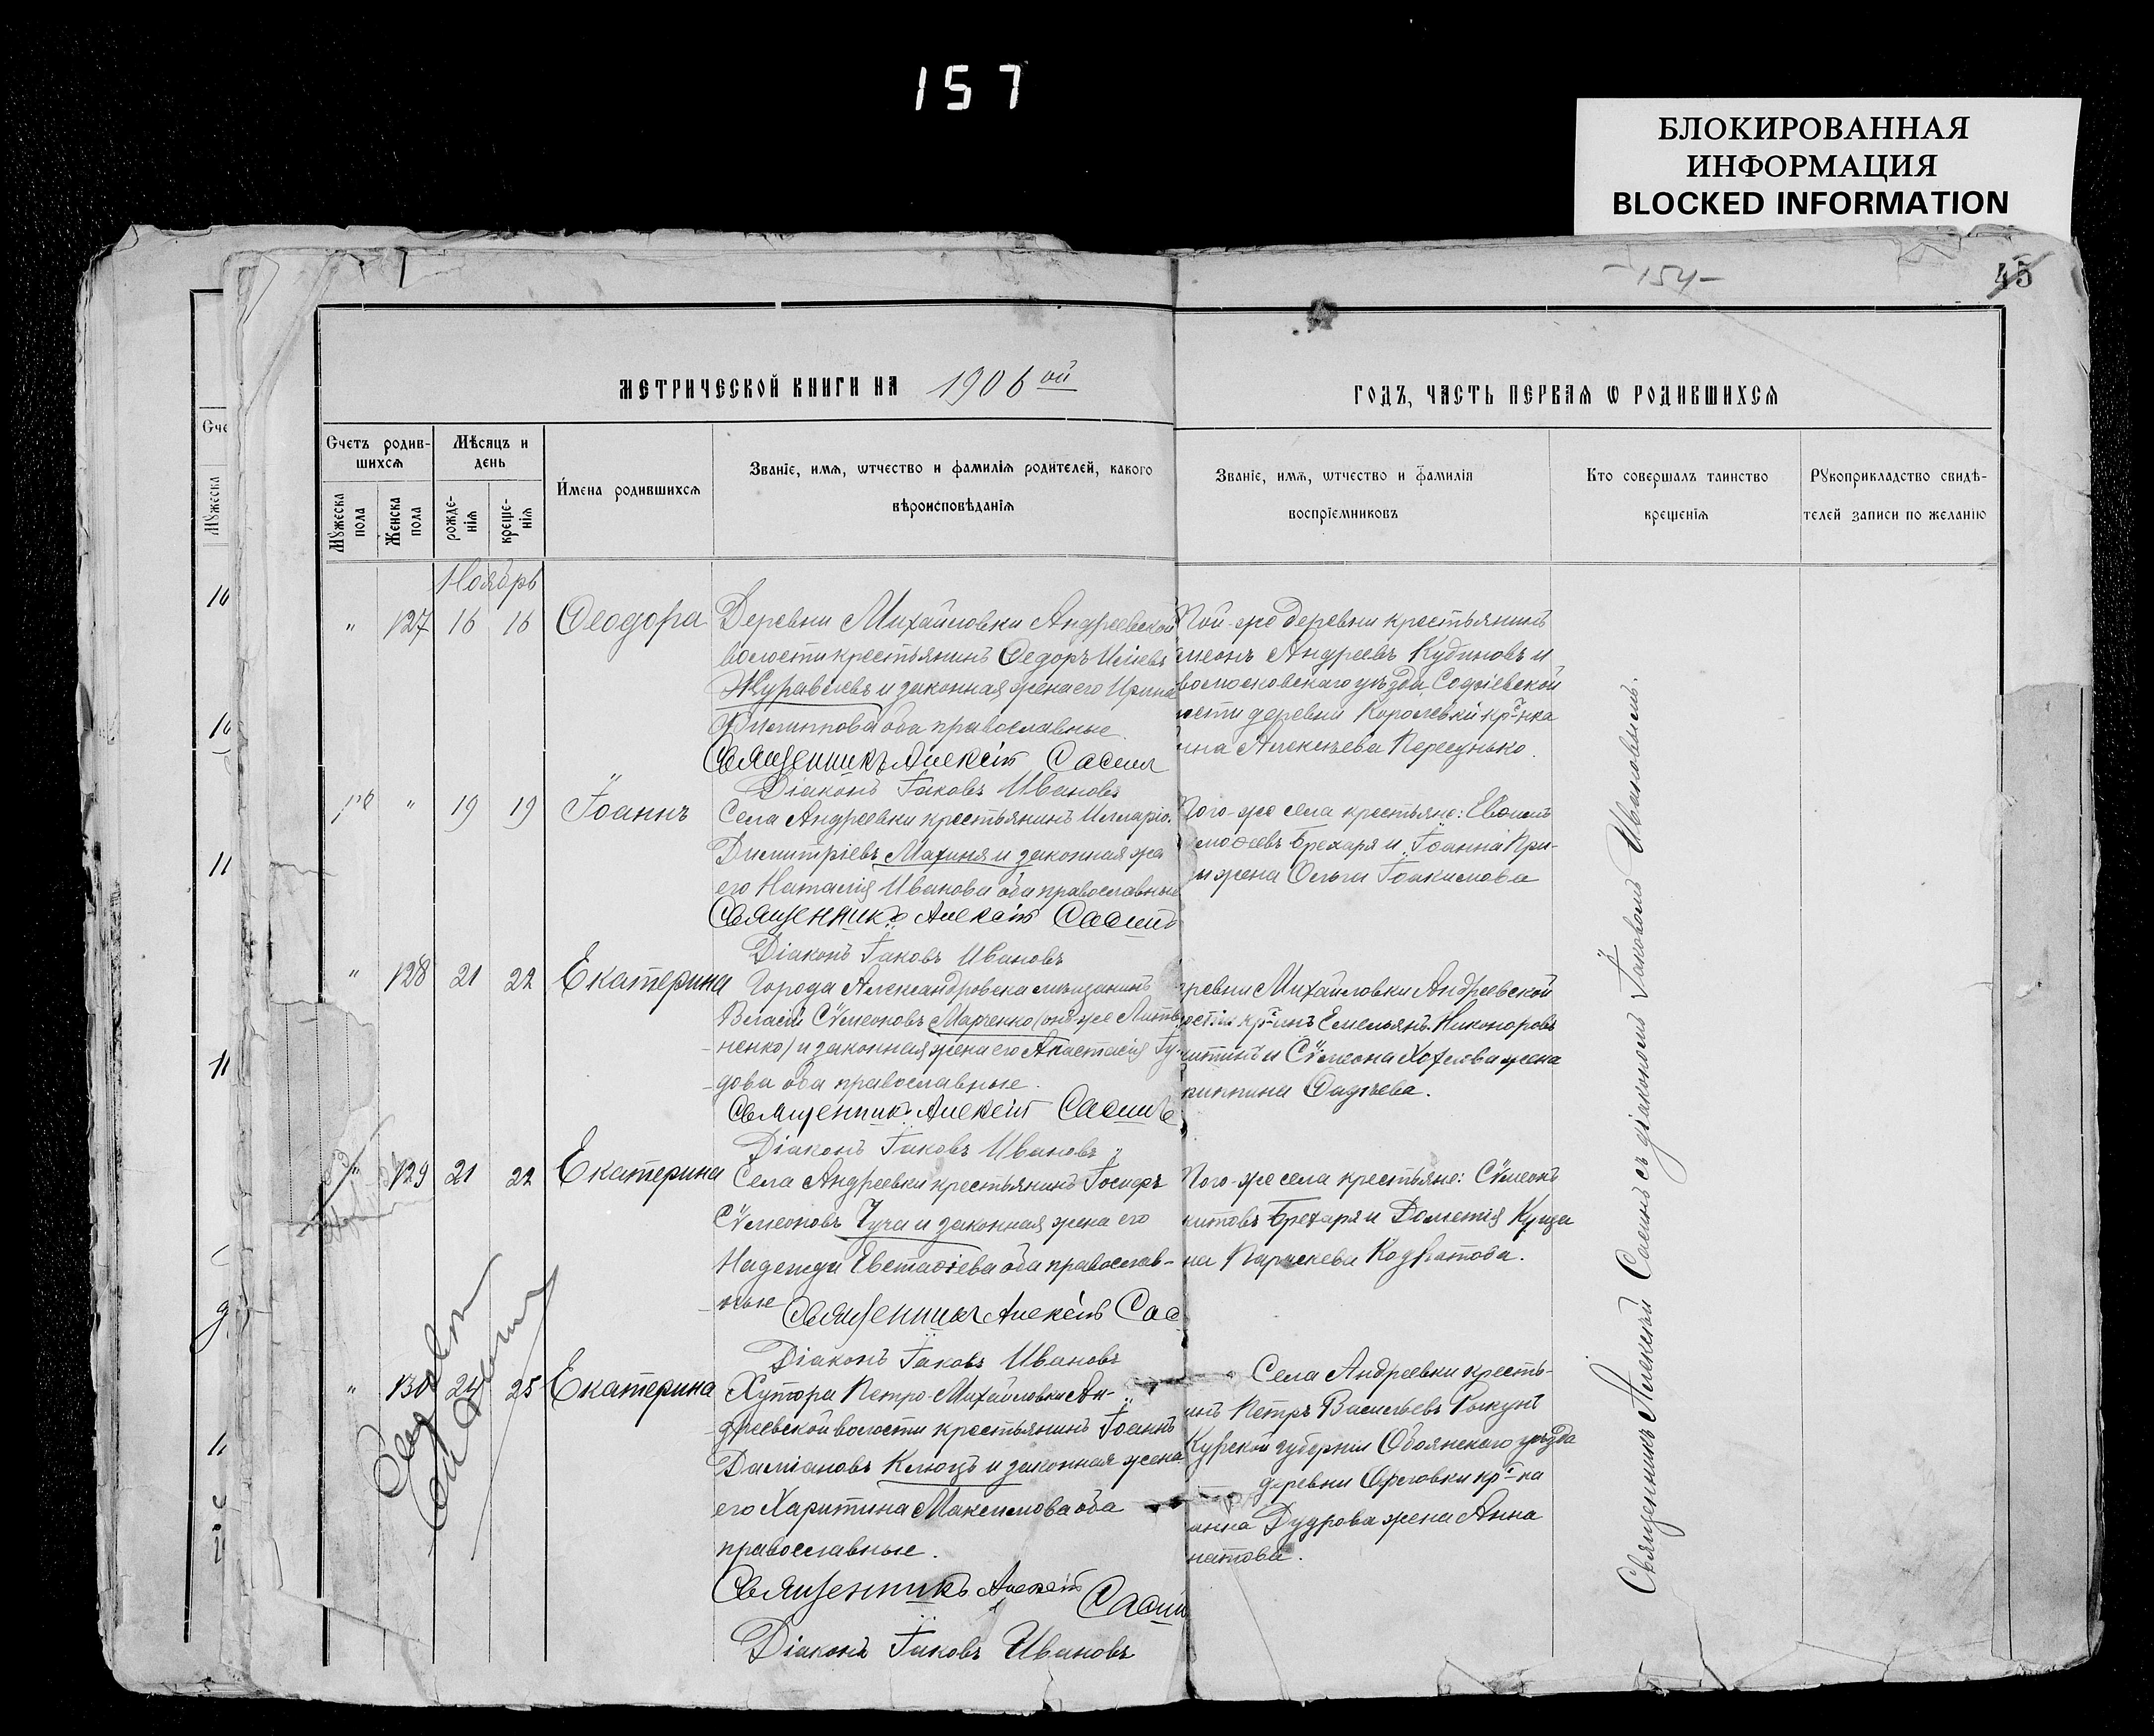 157
БЛОКИРОВАННАЯ
ИНФОРМАЦИЯ
BLOCKED INFORMATION
-154-
45
МЕТРИЧЕСКОЙ КНИГИ НА 1906 ой
ГОДЪ, ЧАСТЬ ПЕРВАЯ Ѡ РОДИВШИХСЯ
Счетъ родив-
шихся
Мѣсяцъ и
день
Имена родившихся
Званіе, имя, ѡтчество и фамилія родителей, какого
вѣроисповѣданія
Званіе, имя, ѡтчество и фамилія
воспріемниковъ
Кто совершалъ таинство
крещенія
Рукоприкладство свидѣ-
телей записи по желанію
Мужеска
пола
Женска
пола
рожде-
нія
креще-
нія
Ноябрь
" 127 16 16 Ѳеодора
Деревни Михайловки Андреевской
волости крестьянинъ Ѳедоръ Иліевъ
Журавлевъ и законная жена его Ирина
Филиппова оба православные.
Священникъ Алексій
Діаконъ Іаковъ Ивановъ
Той-же деревни крестьянинъ
меонъ Андреевъ Кудиновъ и
вомосковскаго уѣзда, Софіевской
ости деревни Королевки кр-нка
нна Алексѣева Пересунько.
" 19 19 Іоаннъ
Села Андреевки крестьянинъ Иларіо.
Димитріевъ Махиня и законная же
его Наталія Иванова оба православные
Священникъ Алексій
Діаконъ Іаковъ Ивановъ
Того-же села крестьяне: Евѳимъ
моѳеевъ Брехаря и Іоанна При-
жена Ольга Іоакимова
" 128 21 22 Екатерина
Города Александровска мѣщанинъ
Власій Сѵмеоновъ Марченко (онъ-же Литв
ненко) и законная жена его Анастасія Гу-
дова оба православные.
Священникъ Алексій
Діаконъ Іаковъ Ивановъ
ревни Михайловки Андреевской
ости кр-инъ Емельянъ Никоноровъ
и Сѵмеона Хохлова жена
Фадѣева.
" 129 21 22 Екатерина
Села Андреевки крестьянинъ Іосифъ
Сѵмеоновъ Чуча и законная жена его
Надежда Евстаѳіева оба православ-
ные
Священникъ Алексій
Діаконъ Іаковъ Ивановъ
Того-же села крестьяне: Сѵмеонъ
китовъ Брехаря и Дометія Куща
на Параскева Кодратова.
" 130 24 25 Екатерина
Хутора Петро-Михайловки Ан-
дреевской волости крестьянинъ Іоаннъ
Даміановъ Клюцъ и законная жена
его Харитина Максимова оба
православные.
Священникъ Алексій
Діаконъ Іаковъ Ивановъ
Села Андреевки кресть-
инъ Петръ Васильевъ Тыкунъ
Курской губерніи Обоянскаго уѣзда
деревни Орловки кр-ка
анна Дудрова жена Анна
натова.
Священникъ Алексѣй Саенъ съ діакономъ Іаковомъ Ивановымъ.